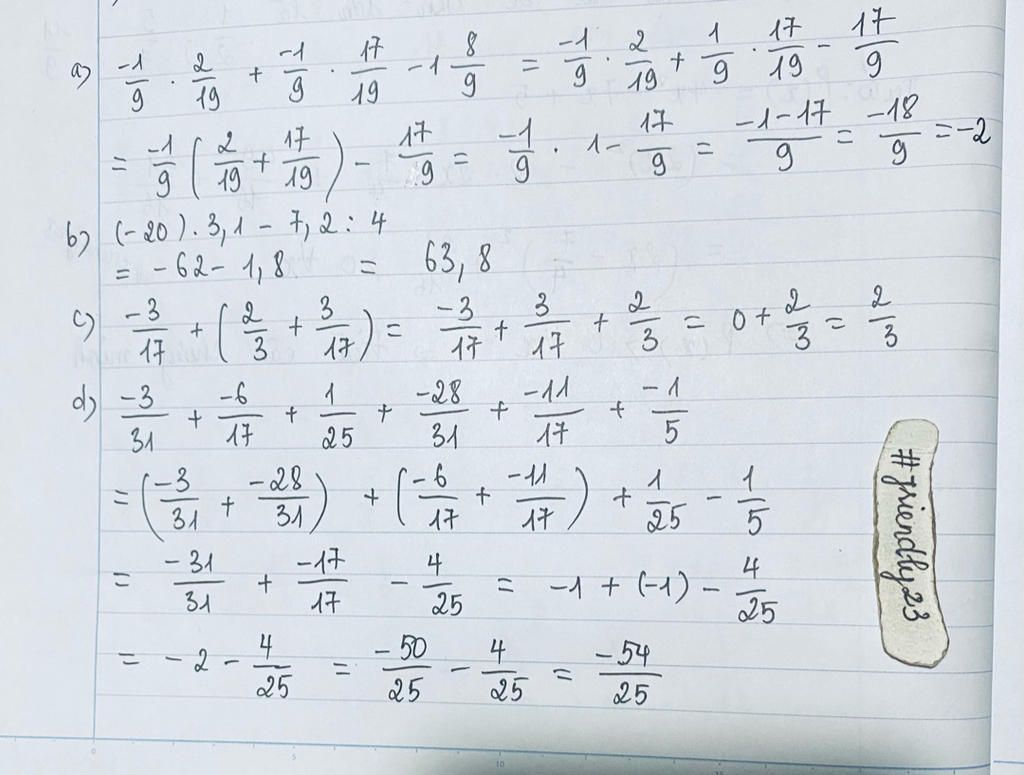 a) -1/9 . 2/19 + -1/9 . 17/19 - 1 8/9 = -1/9 . 2/19 + 1/9 . 17/19 - 17/9
= -1/9 (2/19 + 17/19) - 17/9 = -1/9 . 1 - 17/9 = -1-17/9 = -18/9 = -2
b) (-20) . 3,1 - 7,2 : 4
= -62 - 1,8 = 63,8
c) -3/17 + (2/3 + 3/17) = -3/17 + 3/17 + 2/3 = 0 + 2/3 = 2/3
d) -3/31 + -6/17 + 1/25 + -28/31 + -11/17 + -1/5
= (-3/31 + -28/31) + (-6/17 + -11/17) + 1/25 - 1/5
= -31/31 + -17/17 - 4/25 = -1 + (-1) - 4/25
= -2 - 4/25 = -50/25 - 4/25 = -54/25
#friendly23